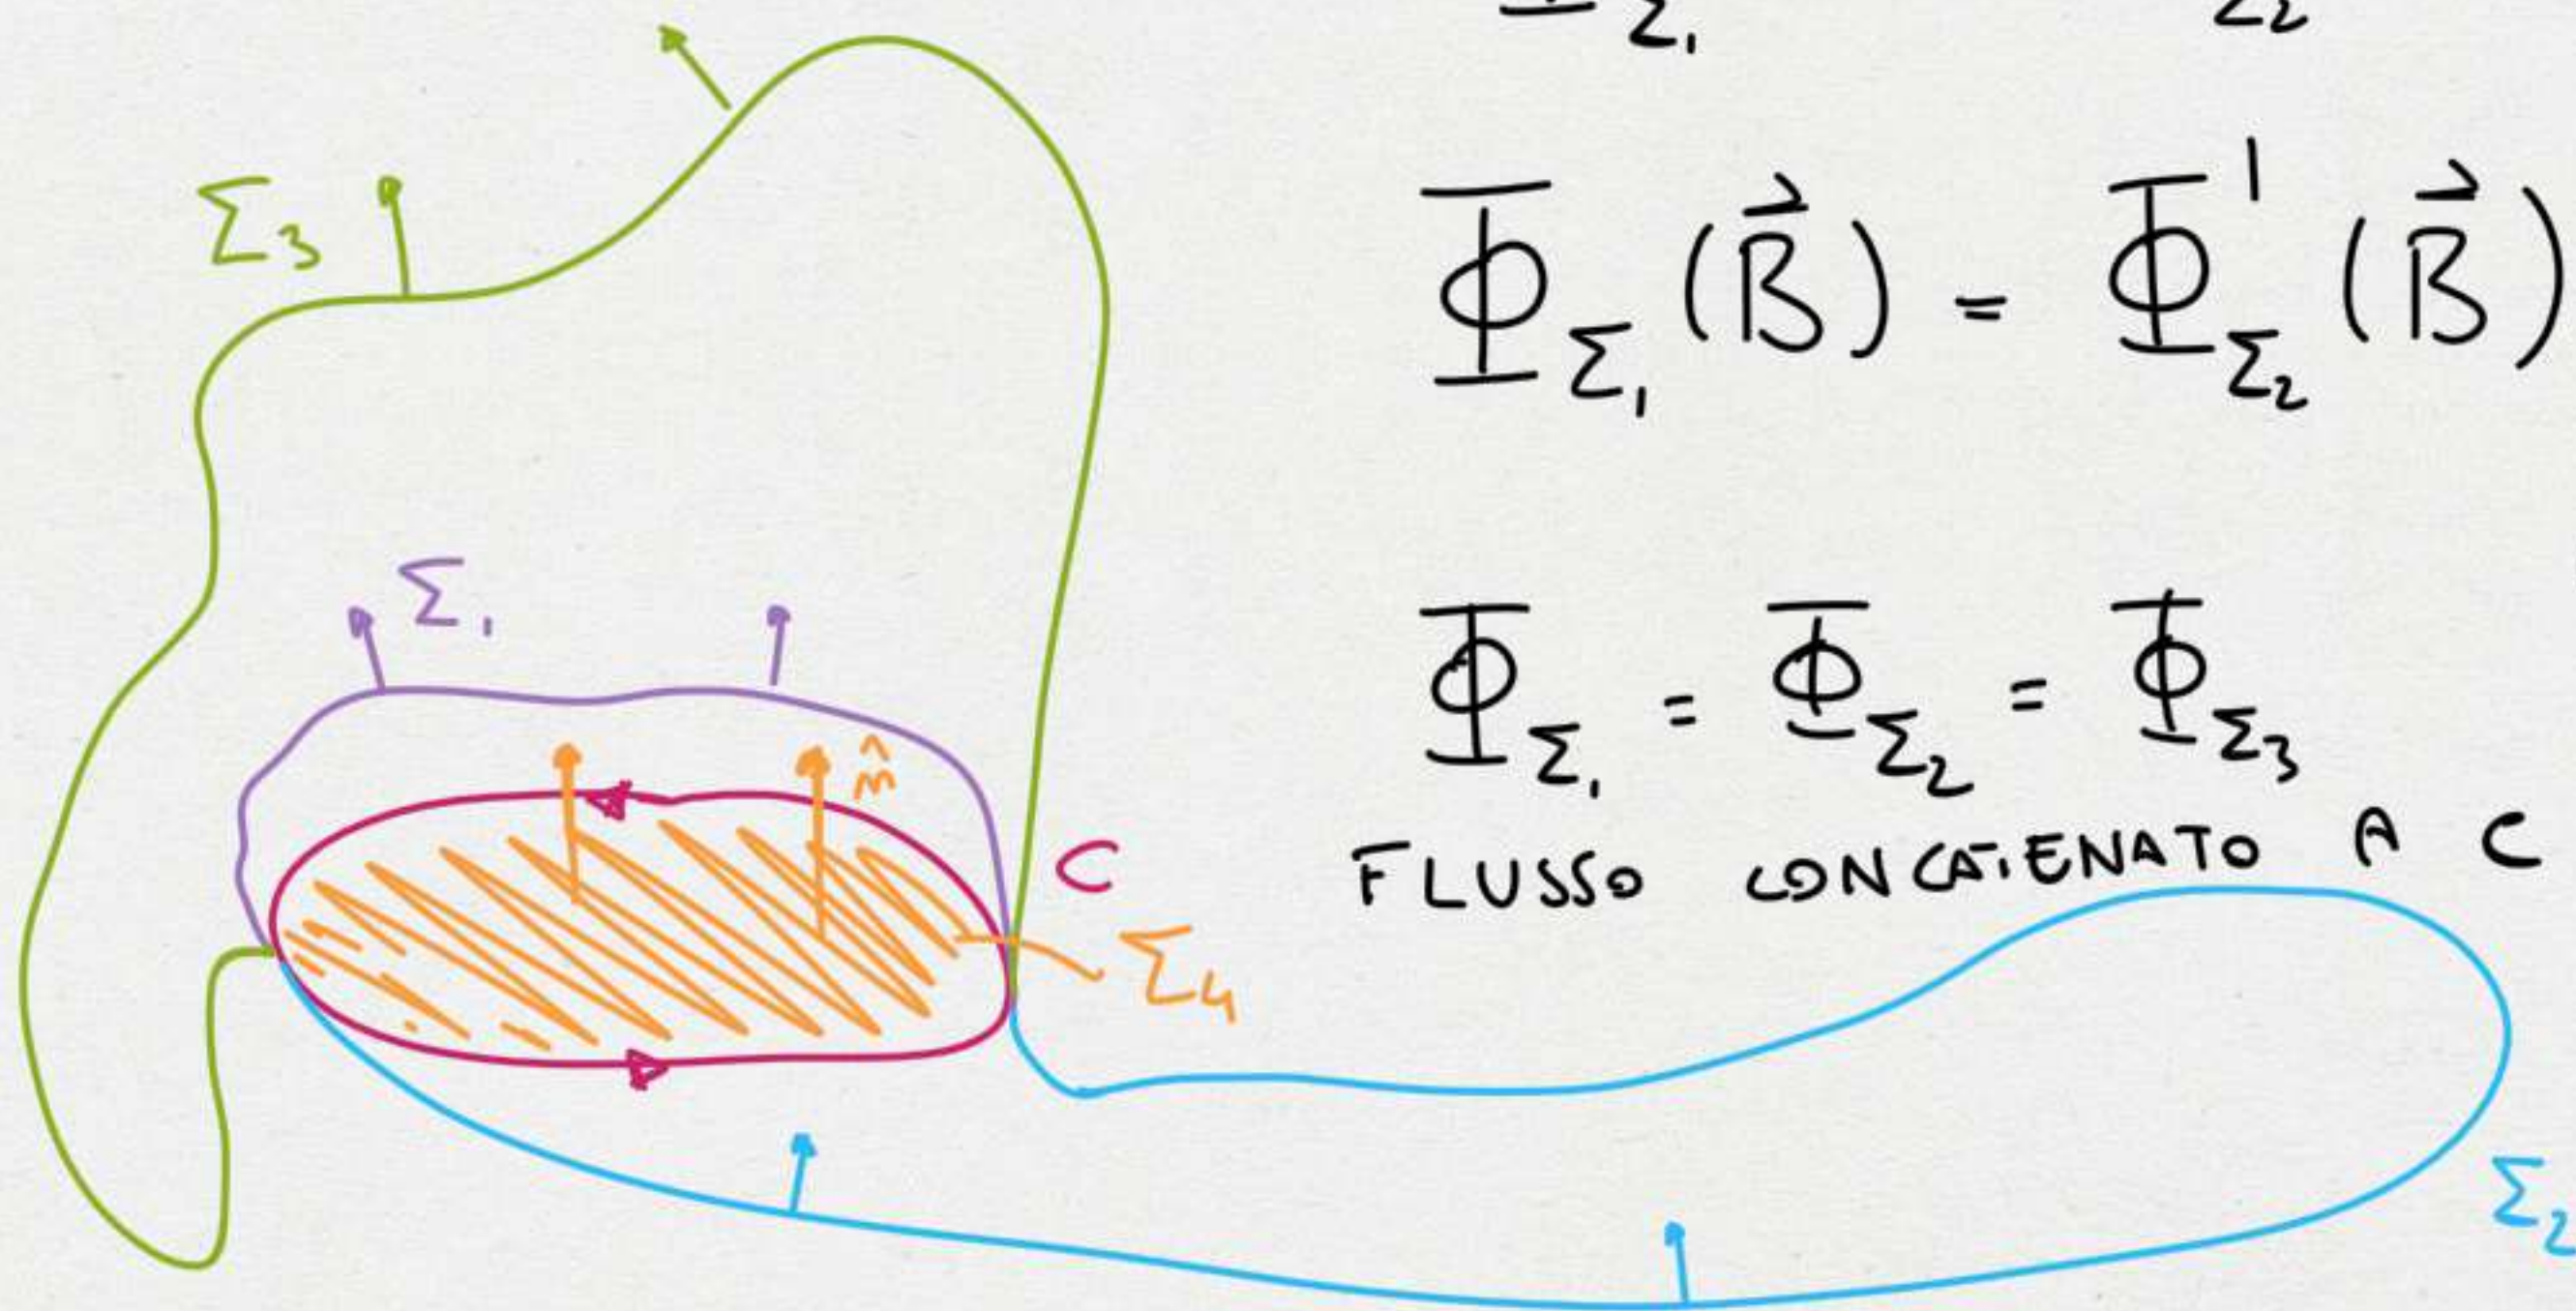 Σ₁ Σ₂
Φ_Σ₁ (B⃗) = Φ'_Σ₂ (B⃗)
Σ₃
Σ₁
Φ_Σ₁ = Φ_Σ₂ = Φ_Σ₃
m̂
FLUSSO CONCATENATO A C
C
Σ₄
Σ₂